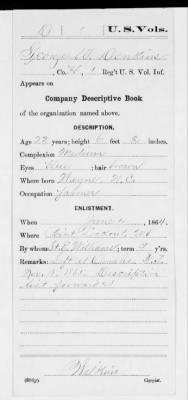 D | 1 | U.S. Vols.
George W. Denkins
Co. H, 1 Reg't U. S. Vol. Inf.
Appears on
Company Descriptive Book
of the organization named above.
DESCRIPTION.
Age 23 years; height 6 feet inches
Complexion Medium
Eyes Blue; hair brown
Where born Wayne N.C.
Occupation farmer
ENLISTMENT.
When June, 1864.
Where Point Lookout, Md
By whom Williams; term 3 y'rs.
Remarks: Left at Omaha, N.T.
Nov. Descriptive
list forwarded
Wilkins
Copyist.